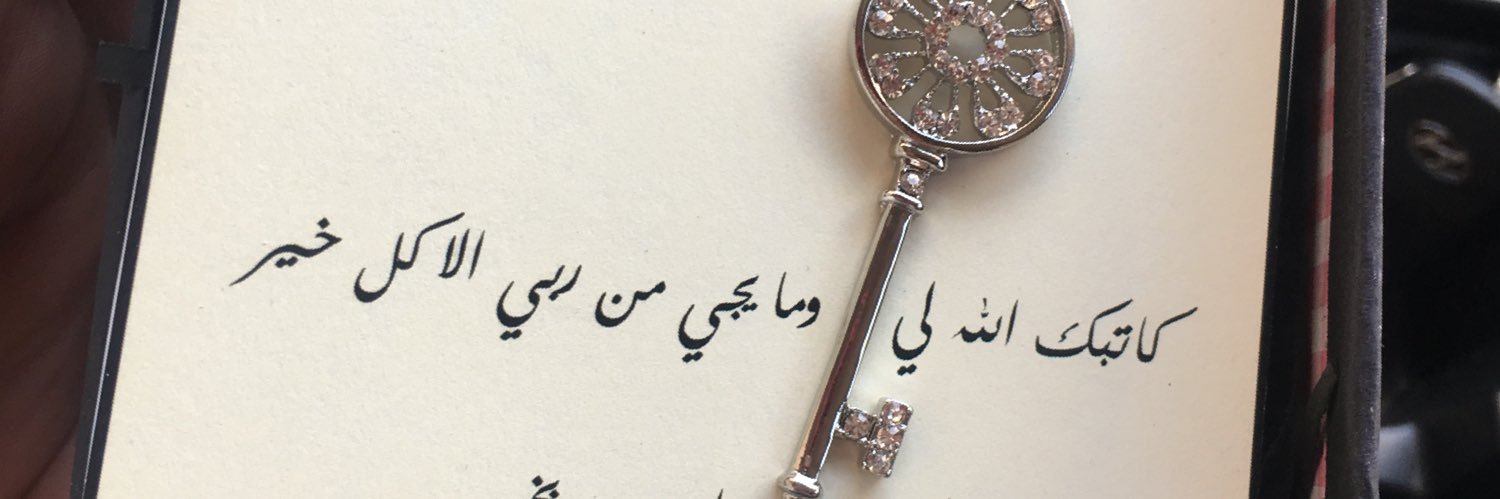 كاتبك الله لي وما يجي من ربي الا كل خير